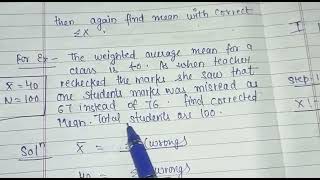 then again find mean with correct
≤x.
For Ex:- The weighted average mean for a
class is 40. As when teacher
rechecked the marks she saw that
one students marks was misread as
67 instead of 76. Find corrected
Mean. Total students are 100.
X̄ = 40
N = 100
Solⁿ X̄ = (wrong)
40 = (wrong)
Step
X